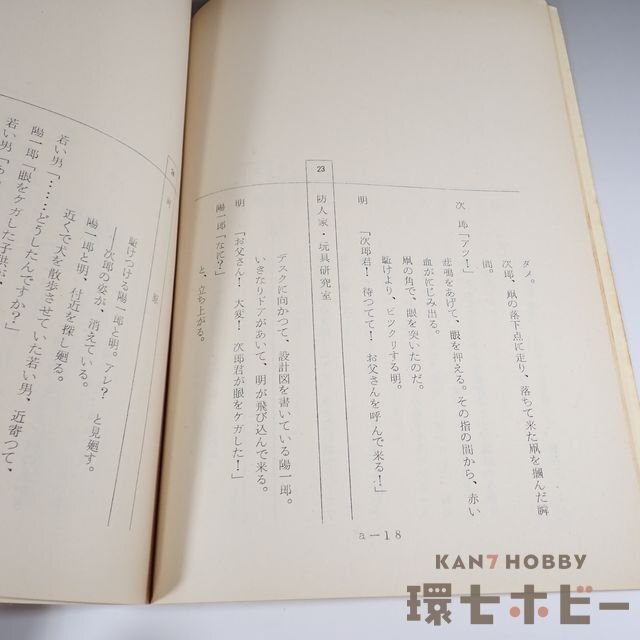 ダメ。
次郎、凧の落下点に走り、落ちて来た凧を摑んだ瞬
間。
次 郎「アツ！」
悲鳴をあげて、眼を押える。その指の間から、赤い
血がにじみ出る。
凧の角で、眼を突いたのだ。
駈けより、ビツクリする明。
明 「次郎君！ 待つてて！ お父さんを呼んで来る！」
23 防人家・玩具研究室
デスクに向かつて、設計図を書いている陽一郎。
いきなりドアがあいて、明が飛び込んで来る。
明 「お父さん！ 大変！ 次郎君が眼をケガした！」
陽一郎「なに？」
と、立ち上がる。
a－18
駈けつける陽一郎と明。アレ？ と見廻す。
――次郎の姿が、消えている。
陽一郎と明、付近を探し廻る。
近くで犬を散歩させていた若い男、近寄つて、
若い男「……どうしたんですか？」
陽一郎「眼をケガした子供が、
若い男「
KAN7 HOBBY
環七ホビー